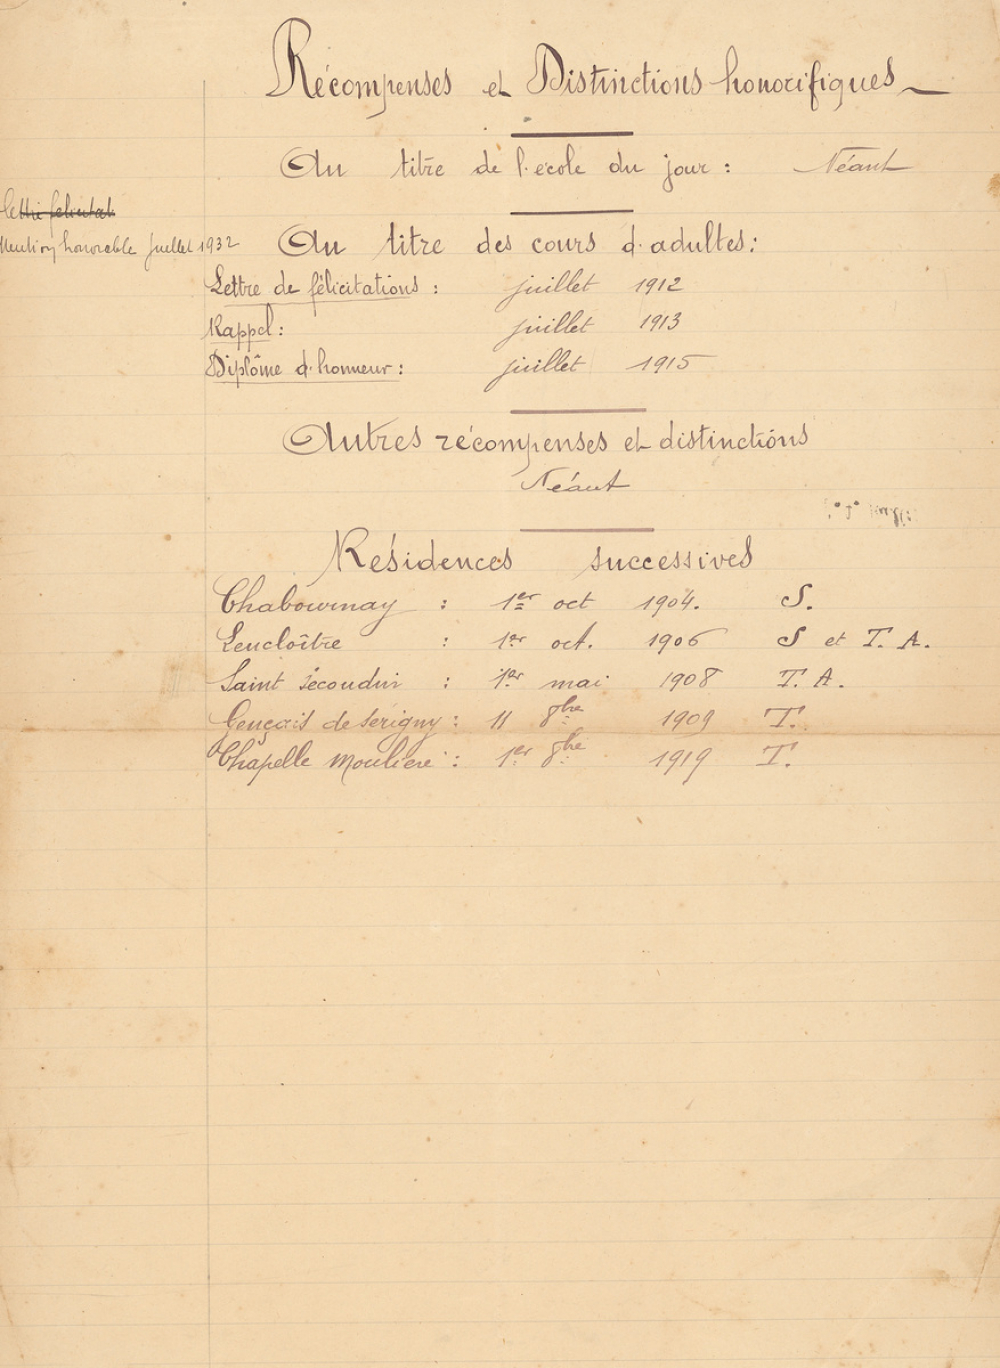 Récompenses et Distinctions honorifiques
Au titre de l'école du jour : Néant
Lettre felicitat
Mention honorable Juillet 1932
Au titre des cours d'adultes :
Lettre de félicitations : juillet 1912
Rappel : juillet 1913
Diplôme d'honneur : juillet 1915
Autres récompenses et distinctions
Néant
Résidences successives
Chabournay : 1er oct 1904. S.
Lencloître : 1er oct. 1906 S et T. A.
Saint Secondin : 1er mai 1908 T. A.
Gençais de Sérigny : 11 8bre 1909 T.
Chapelle Moulière : 1er 8bre 1919 T.